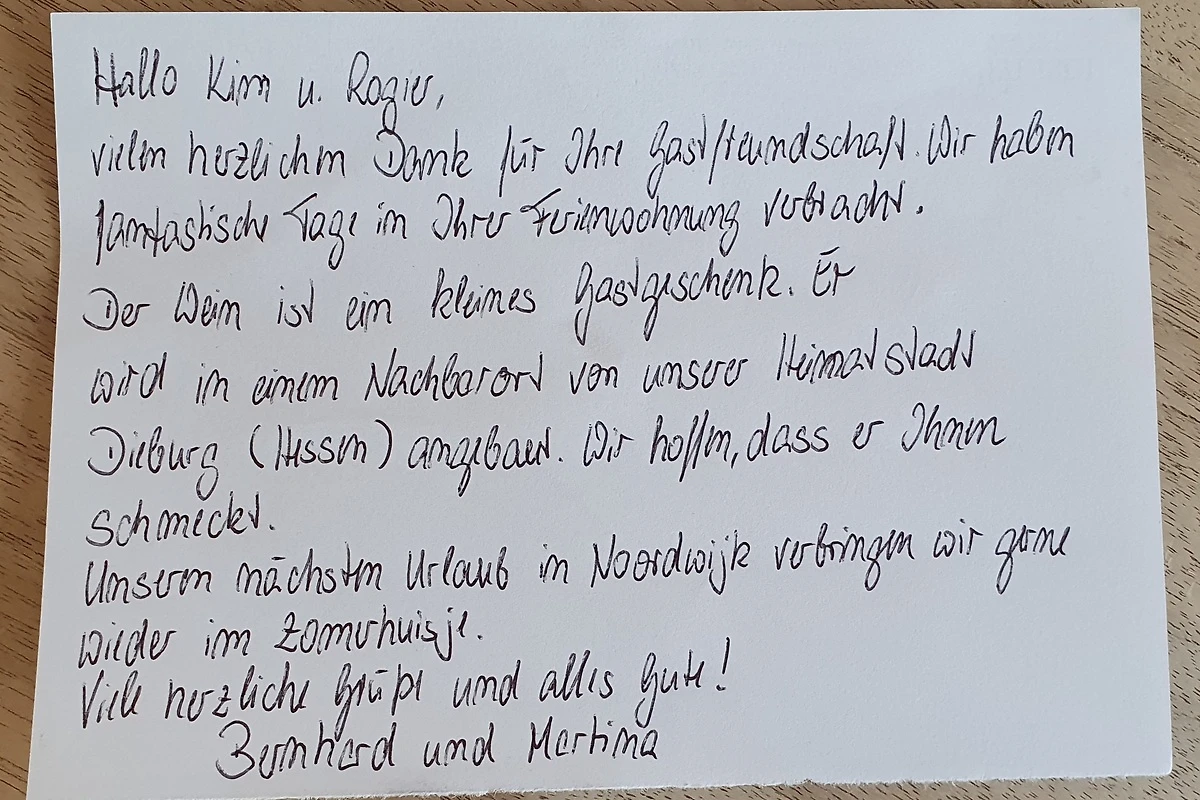 Hallo Kim u. Rogier,
vielen herzlichen Dank für Ihre Gastfreundschaft. Wir haben
fantastische Tage in Ihrer Ferienwohnung verbracht.
Der Wein ist ein kleines Gastgeschenk. Er
wird in einem Nachbarort von unserer Heimatstadt
Dieburg (Hessen) angebaut. Wir hoffen, dass er Ihnen
schmeckt.
Unseren nächsten Urlaub in Noordwijk verbringen wir gerne
wieder im Zomerhuisje.
Viele herzliche Grüße und alles Gute!
Bernhard und Martina